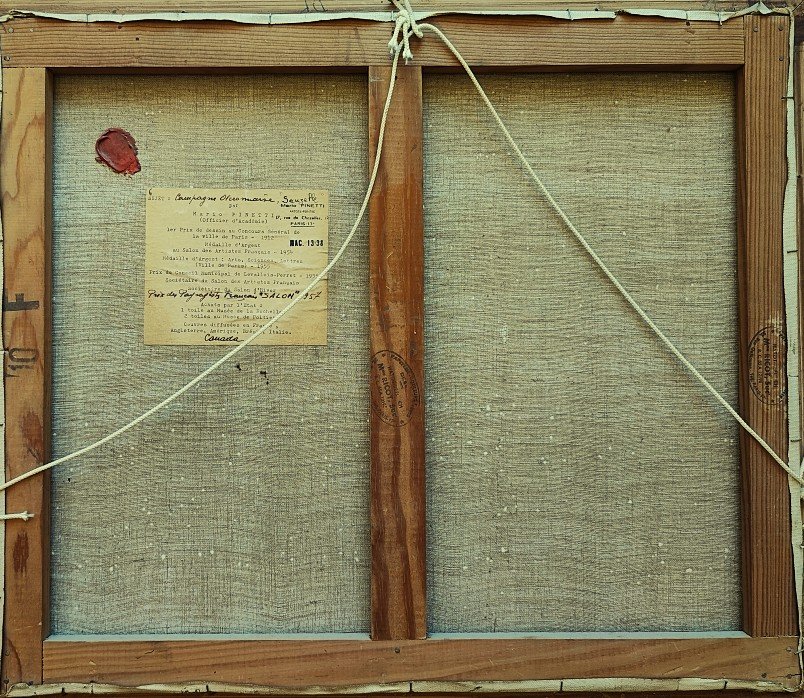 SUJET : Campagne
PAR
Mario PINETTI
(Officier d'Académie)
Mario PINETTI
ARTISTE-PEINTRE
17, rue de Chazelles,
PARIS-17e
MAC. 13-38
1er Prix de dessin au Concours Général de
la Ville de Paris - 1912
Médaille d'Argent
au Salon des Artistes Français - 1954
Médaille d'Argent : Arts, Sciences, Lettres
(Ville de Paris) - 1955
Prix du Conseil Municipal de Levallois-Perret - 1956
Sociétaire du Salon des Artistes Français
Sociétaire du Salon d'Hiver
Prix des Paysagistes Français "SALON" 1957
Achats par l'Etat :
1 toile au Musée de La Rochelle
2 toiles au Musée de Poitiers
Oeuvres diffusées en France,
Angleterre, Amérique, Italie.
Canada
10 F